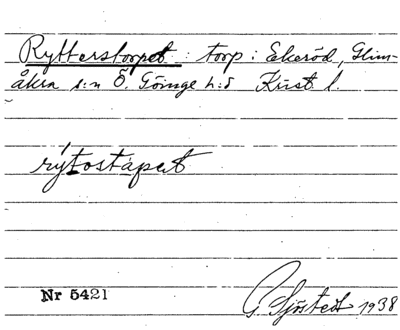 Rytterstorpet : torp : Ekeröd, Glim-
åkra s:n Ö. Göinge h:d Krist l.
rýtostàpət
Nr 5421
G. Sjöstedt 1938